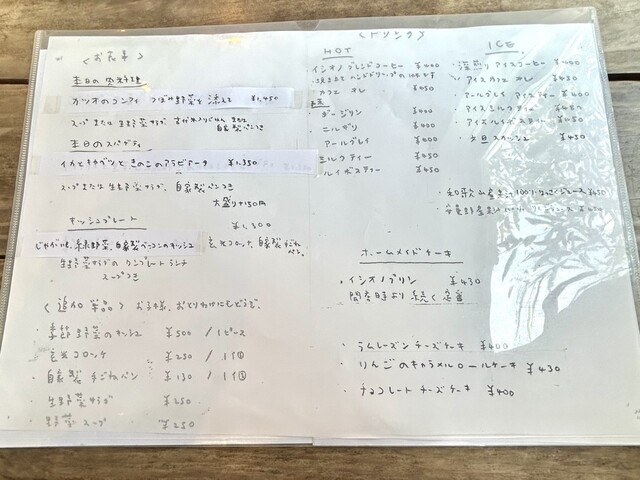 〈お食事〉
本日のお料理
カツオのコンフィ つぼみ野菜を添えて ¥1,450
スープまたは生野菜サラダ
自家製パンつき
本日のスパゲティ
イカとキャベツときのこのアラビアータ ¥1,350
スープまたは生野菜サラダ、自家製パンつき
大盛り+150円
キッシュプレート ¥1,300
じゃがいも、緑野菜、自家製ベーコンのキッシュ 玄米コロッケ、自家製
生野菜サラダのコンプレートランチ
スープつき
〈追加単品〉 お子様、おとりわけにもどうぞ。
・季節野菜のキッシュ ¥500 / 1ピース
・玄米コロッケ ¥250 / 1個
・自家製手ごねパン ¥130 / 1個
・生野菜サラダ ¥250
・野菜スープ ¥250
〈ドリンク〉
HOT
・イシオノブレンドコーヒー ¥400
・カフェオレ ¥450
・ダージリン ¥400
・ニルギリ ¥400
・アールグレイ ¥400
・ミルクティー ¥450
・ルイボスティー ¥450
ICE
・深煎りアイスコーヒー ¥400
・アイスカフェオレ ¥450
・アールグレイアイスティー ¥400
・アイスミルクティー ¥450
・アイスルイボスティー ¥450
・文旦スカッシュ ¥450
・和歌山産100%りんごジュース ¥450
ホームメイドケーキ
・イシオノプリン ¥430
開店時より続く定番
・ラムレーズンチーズケーキ ¥400
・りんごのキャラメルロールケーキ ¥430
・チョコレートチーズケーキ ¥400